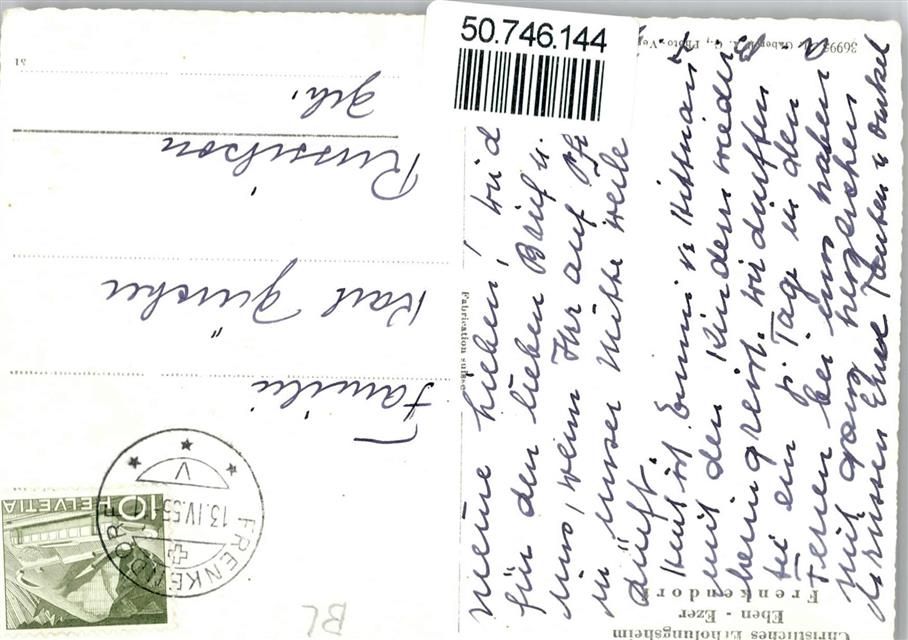 50.746.144
Christliches Erholungsheim
Eben - Ezer
Frenkendorf
Fabrication suisse
HELVETIA
10
FRENKENDORF
13.IV.55
V
Familie
Karl
Russikon
Zch.
BL
meine Lieben! Wir d
für den lieben Brief u.
uns, wenn Ihr auf
in unser Hütte weile
dürft.
Heut ist Emmi v.
mit den Kindern wieder
heimgereist. wir durften
sie ein p. Tage in den
Ferien bei uns haben
mit ganz herzlichen
Grüssen Eure Tanten u Onkel